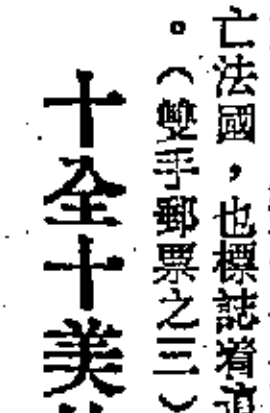 亡法國，也標誌着
。（雙手郵票之三）
十全十美